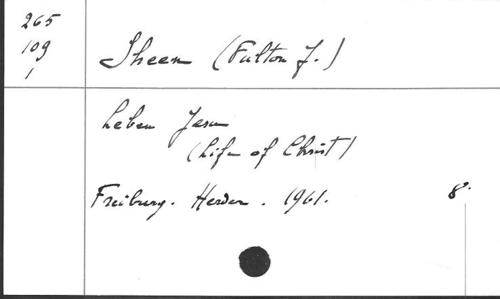 265
109
1
Sheen (Fulton J.)
Leben Jesu
(Life of Christ)
Freiburg. Herder. 1961. 8°